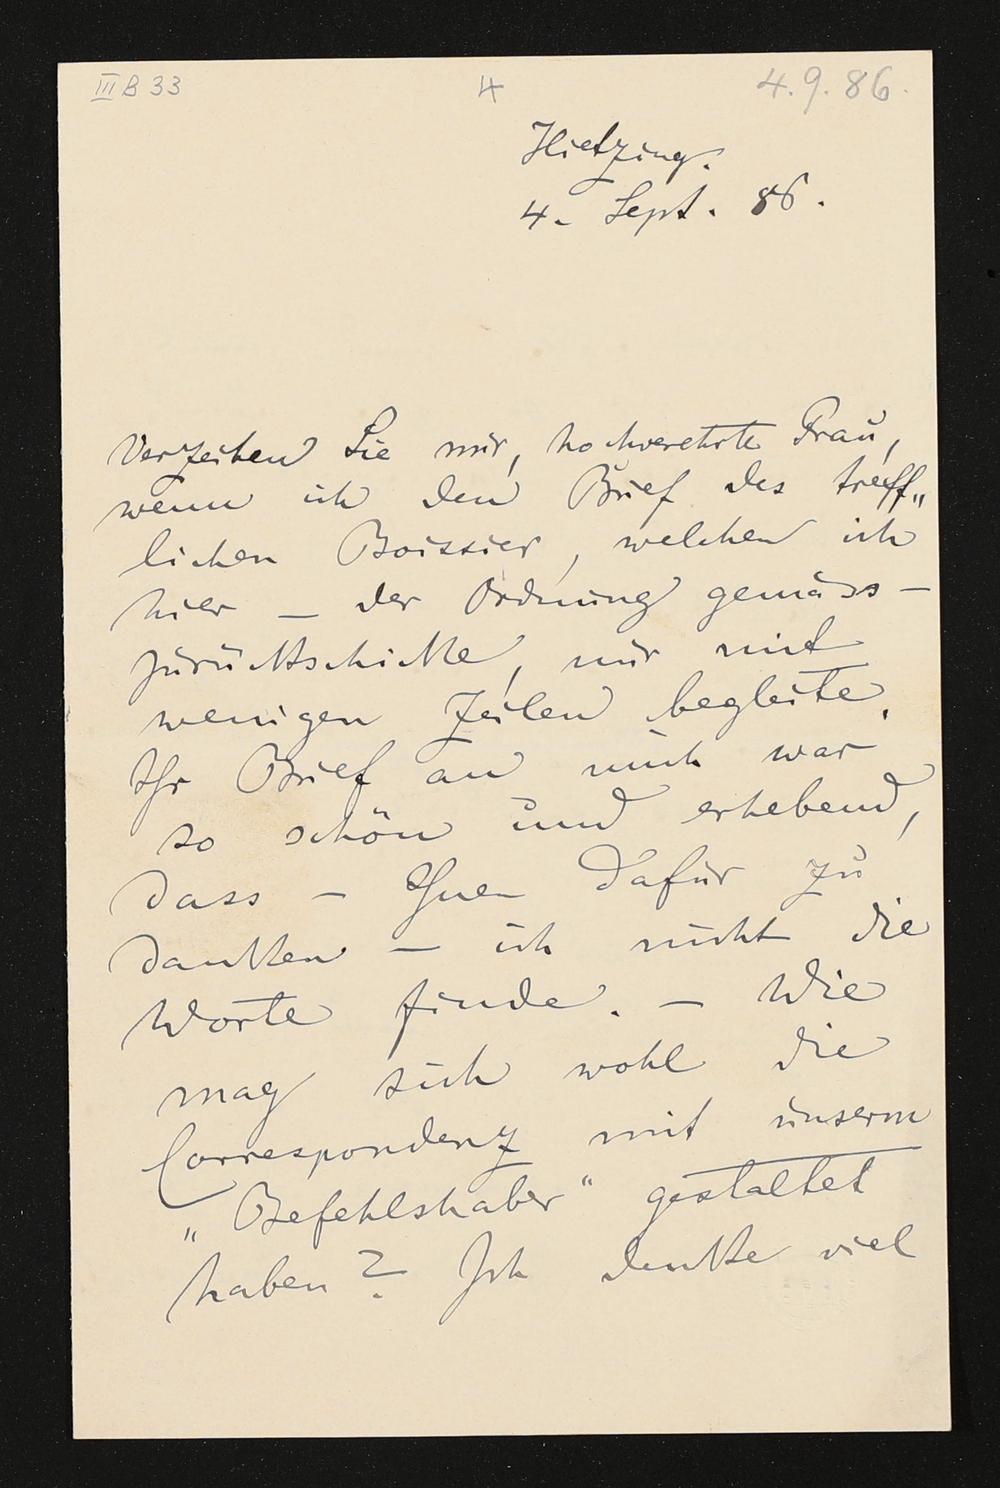 III B 33 4 4.9.86.
Hietzing.
4. Sept. 86.
Verzeihen Sie mir, hochverehrte Frau,
wenn ich den Brief des treff„
lichen Boissier, welchen ich
hier – der Ordnung gemäss –
zurückschicke, nur mit
wenigen Zeilen begleite.
Ihr Brief an mich war
so schön und erhebend,
dass – Ihnen dafür zu
danken – ich nicht die
Worte finde. – Wie
mag sich wohl die
Correspondenz mit unserm
„Befehlshaber“ gestaltet
haben? Ich denke viel